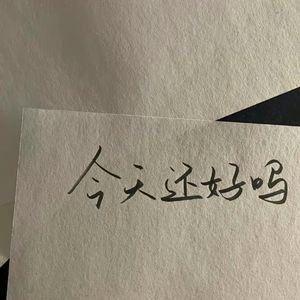 今天还好吗